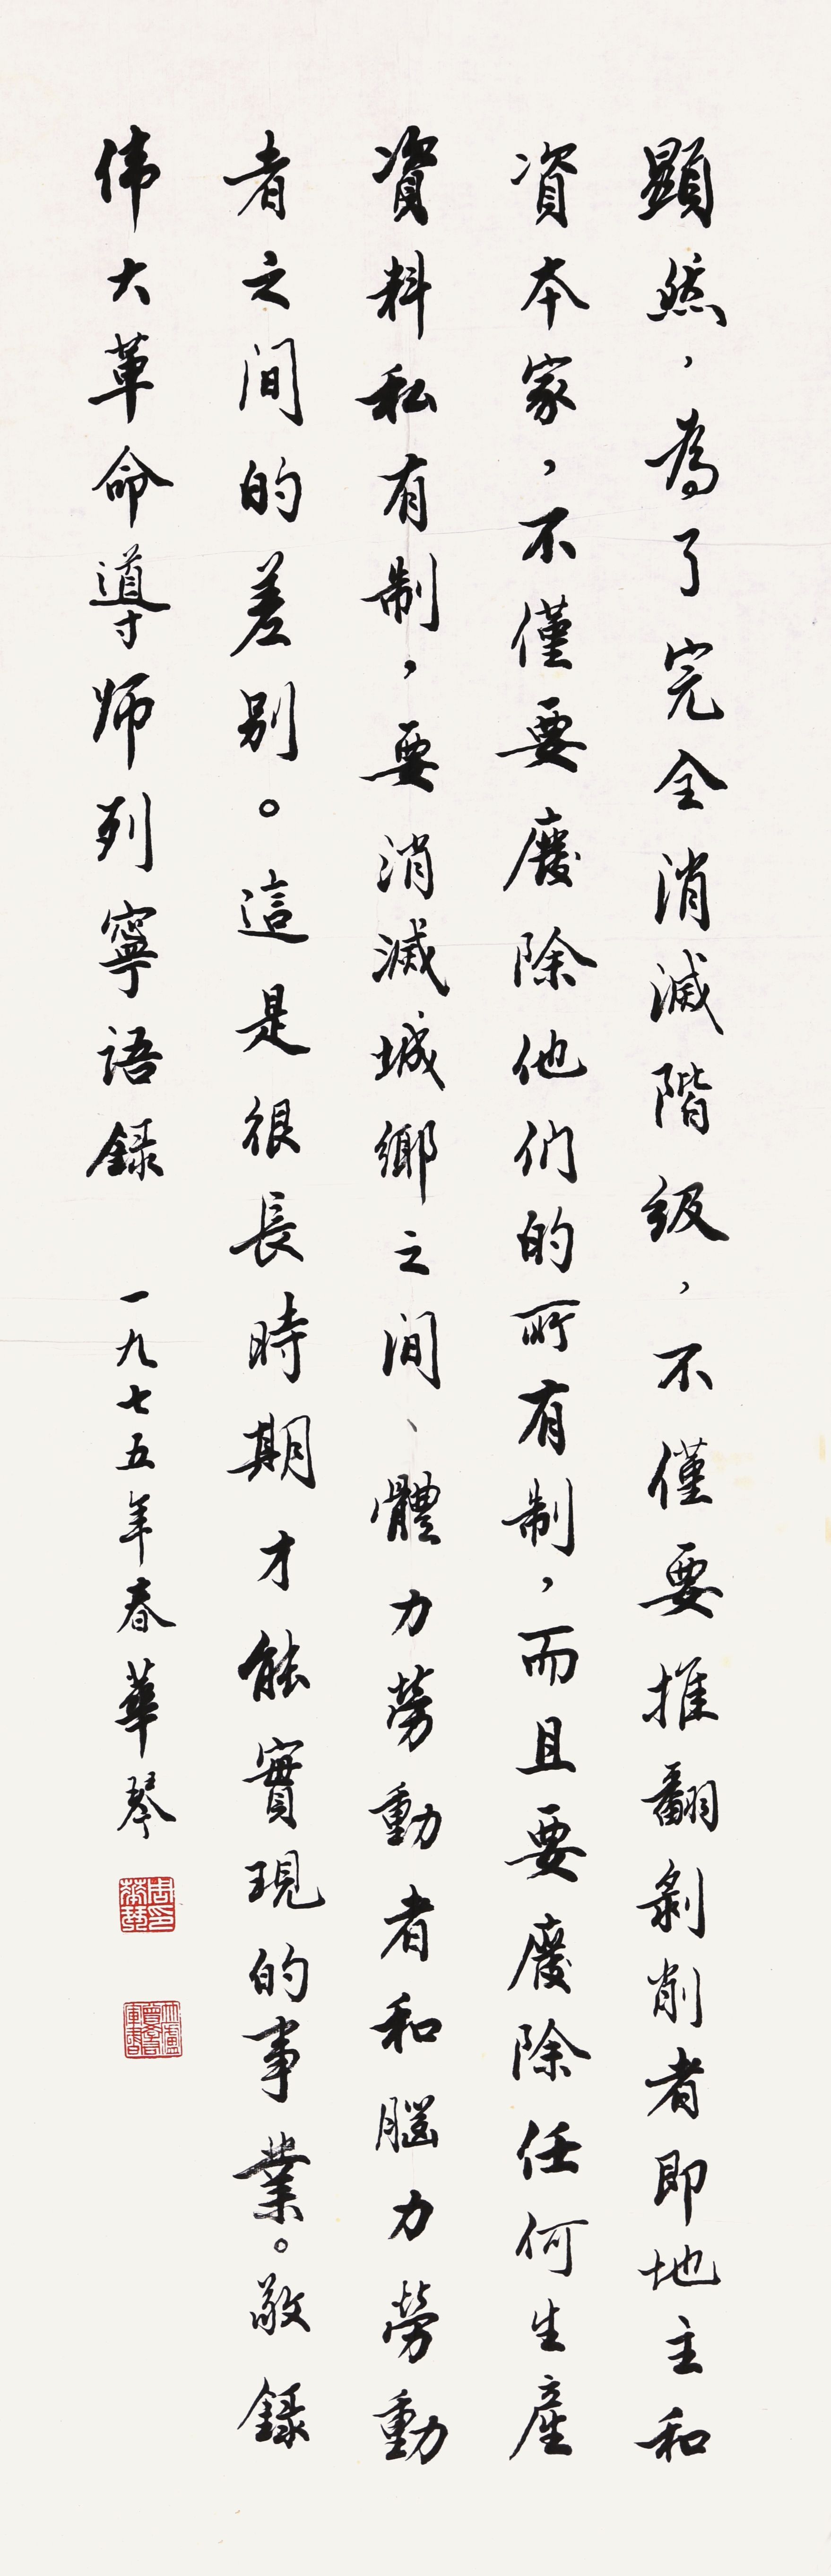 顯然，為了完全消滅階级，不僅要推翻剝削者即地主和
資本家，不僅要廢除他们的所有制，而且要廢除任何生產
資料私有制，要消滅城鄉之间、體力勞動者和腦力勞動
者之间的差别。這是很長時期才能實現的事業。敬錄
伟大革命導师列寧語錄
一九七五年春華琴